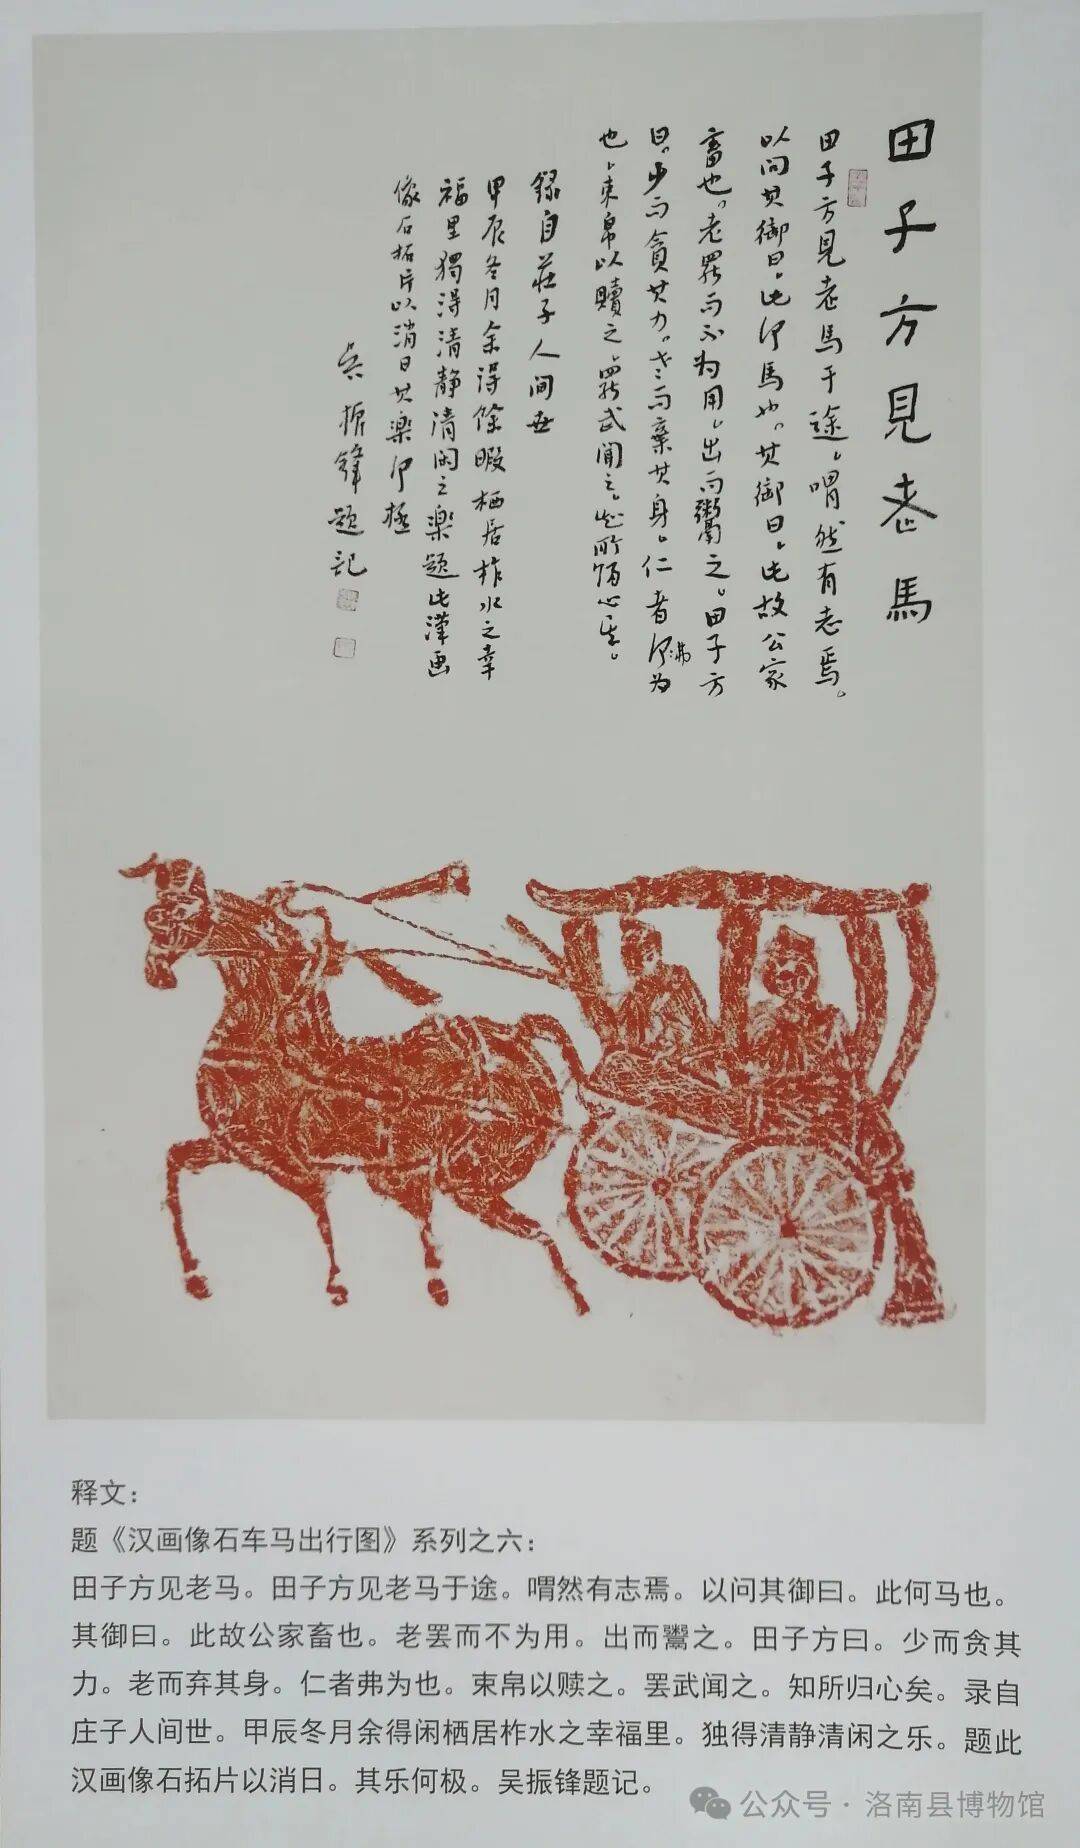 田子方見老馬
田子方見老馬于途、喟然有志焉。
以问其御曰、此何馬也。其御曰、此故公家
畜也。老罷而不为用、出而鬻之。田子方
曰。少而貪其力。老而棄其身。仁者何为
弗
也、束帛以贖之、罷武闻之。知所归心矣。
録自莊子人间世
甲辰冬月余得馀暇栖居柞水之幸
福里獨得清静清闲之樂题此漢画
像石拓片以消日其樂何極
吴振鋒题记
释文：
题《汉画像石车马出行图》系列之六：
田子方见老马。田子方见老马于途。喟然有志焉。以问其御曰。此何马也。
其御曰。此故公家畜也。老罢而不为用。出而鬻之。田子方曰。少而贪其
力。老而弃其身。仁者弗为也。束帛以赎之。罢武闻之。知所归心矣。录自
庄子人间世。甲辰冬月余得闲栖居柞水之幸福里。独得清静清闲之乐。题此
汉画像石拓片以消日。其乐何极。吴振锋题记。
公众号·洛南县博物馆